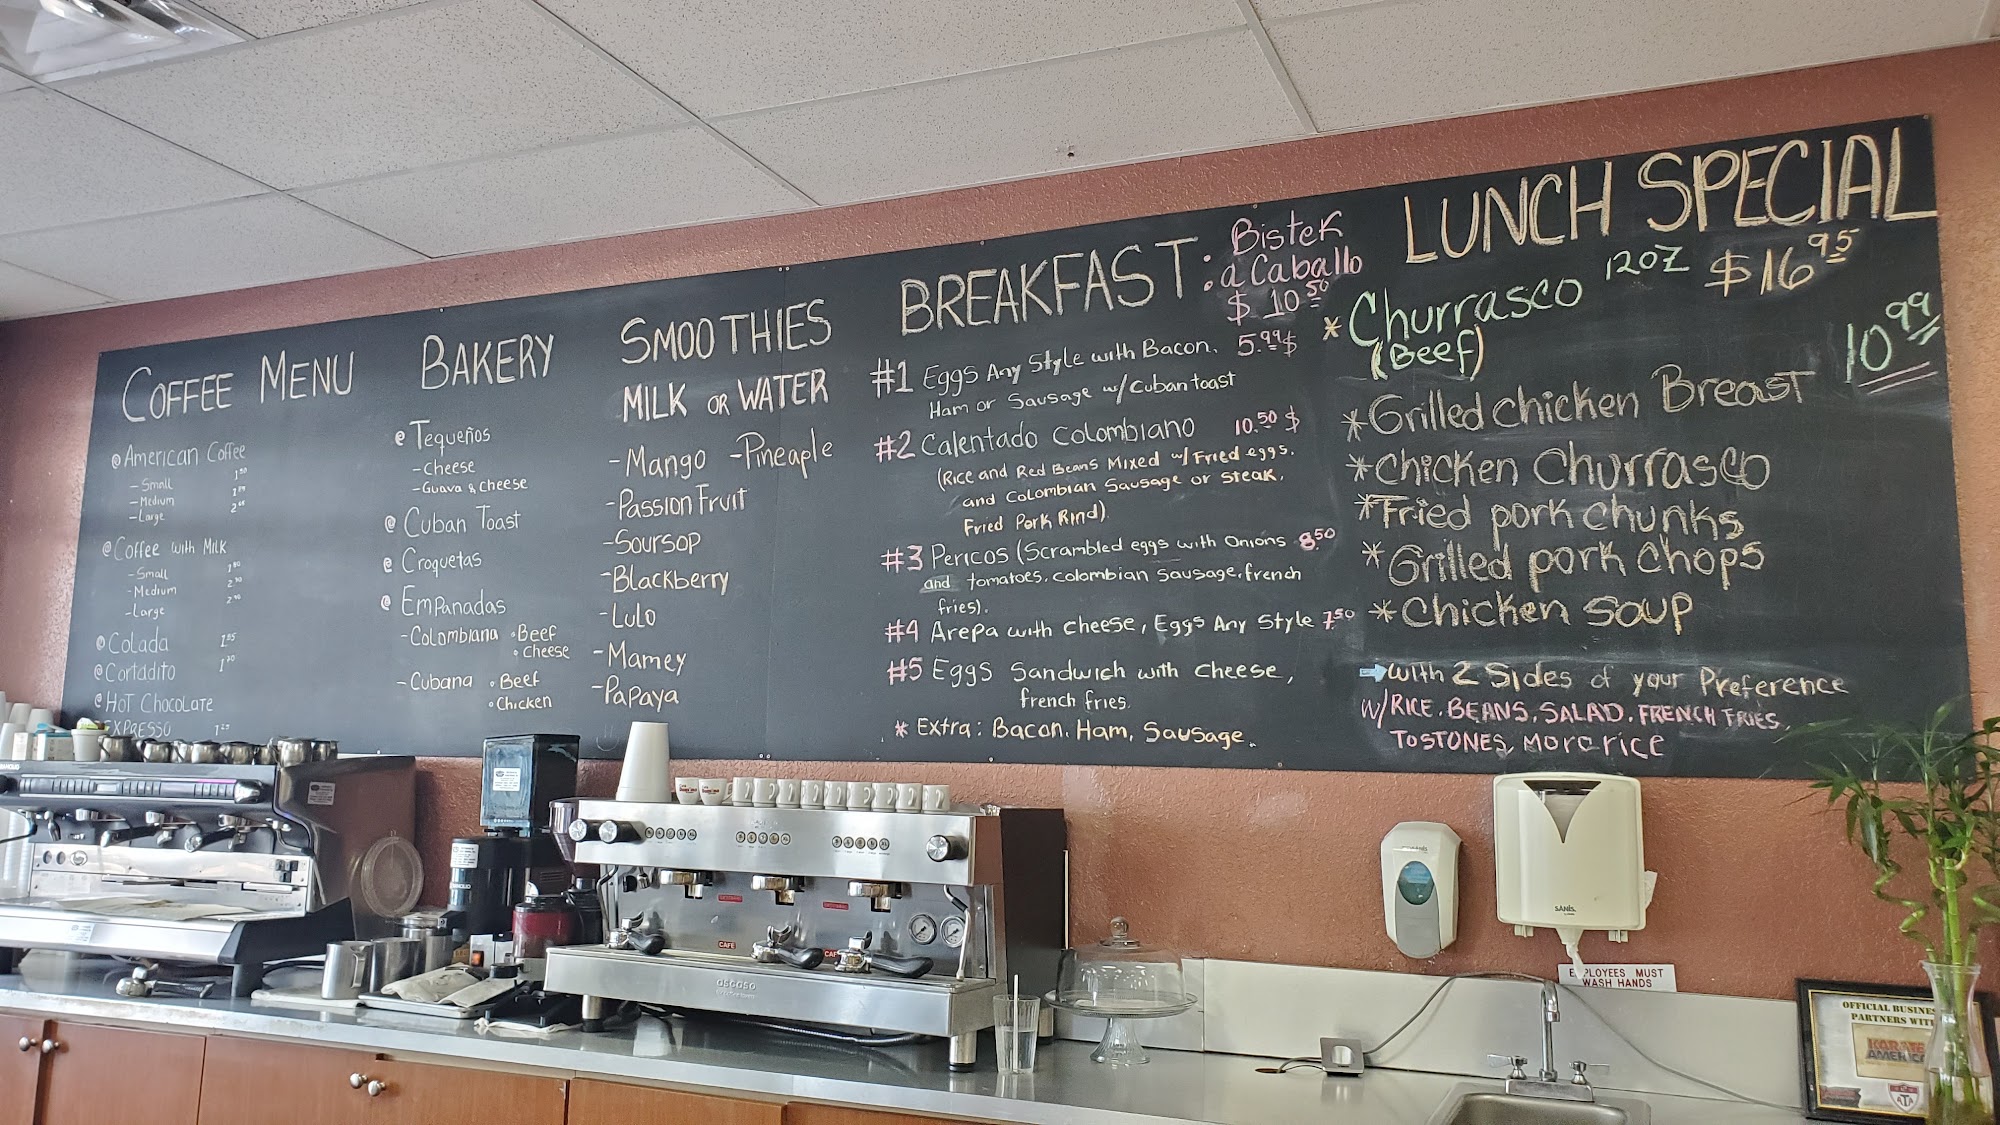 COFFEE MENU
@ American Coffee
- Small
- Medium
- Large
@ Coffee with Milk
- Small
- Medium
- Large
@ Colada
@ Cortadito
@ Hot Chocolate
EXPRESSO
BAKERY
@ Tequeños
- Cheese
- Guava & Cheese
@ Cuban Toast
@ Croquetas
@ Empanadas
- Colombiana • Beef
• Cheese
- Cubana • Beef
• Chicken
SMOOTHIES
MILK OR WATER
- Mango - Pineaple
- Passion Fruit
- Soursop
- Blackberry
- Lulo
- Mamey
- Papaya
BREAKFAST:
Bistek
a Caballo
$ 10.50
#1 Eggs Any Style with Bacon, 5.99 $
Ham or Sausage w/Cuban toast
#2 Calentado Colombiano 10.50 $
(Rice and Red Beans Mixed w/ Fried eggs,
and Colombian Sausage or Steak,
Fried Pork Rind)
#3 Pericos (Scrambled eggs with Onions 8.50
and tomatoes, colombian Sausage, french
fries).
#4 Arepa with cheese, Eggs Any Style 7.50
#5 Eggs Sandwich with cheese,
french fries.
* Extra: Bacon, Ham, Sausage.
LUNCH SPECIAL
* Churrasco 12oz $16.95
(Beef)
10.99
* Grilled chicken Breast
* chicken Churrasco
* Fried pork chunks
* Grilled pork chops
* Chicken soup
with 2 Sides of your Preference
w/RICE, BEANS, SALAD, FRENCH FRIES,
TOSTONES, Moro rice
ascaso
CAFE
SANIS
EMPLOYEES MUST
WASH HANDS
OFFICIAL BUSINES
PARTNERS WIT
ATA